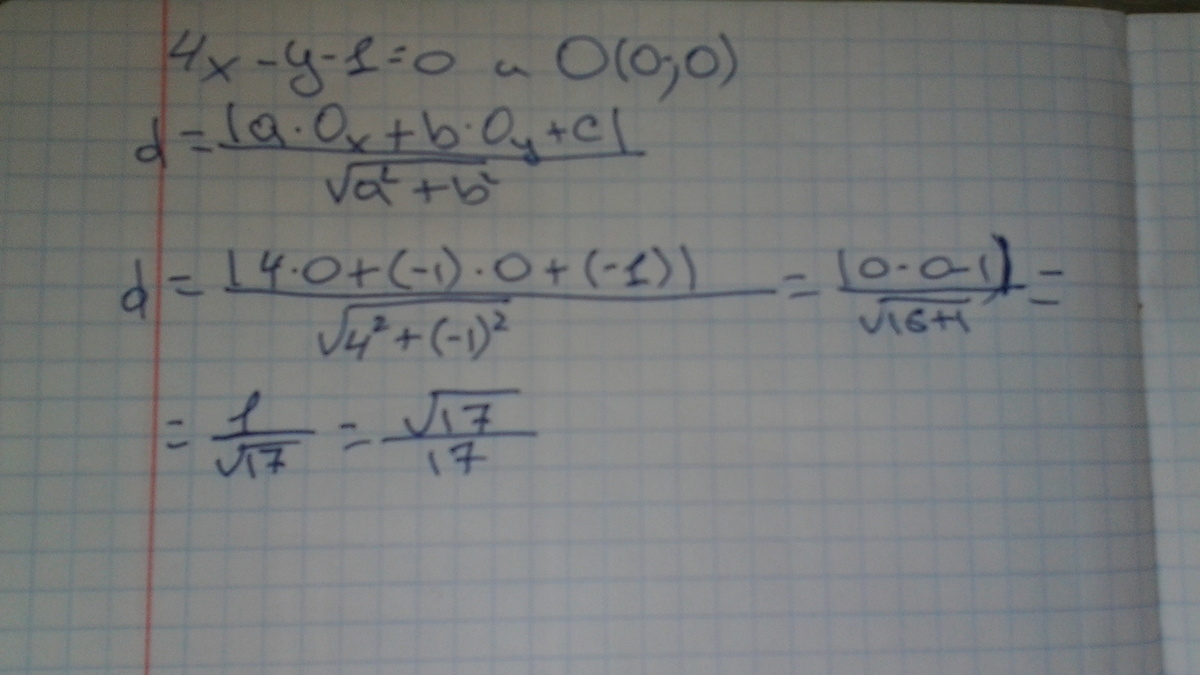 4x-y-1=0 и O(0;0)
d = |a·Oₓ+b·Oᵧ+c| / √a²+b²
d = |4·0+(-1)·0+(-1)| / √4²+(-1)² = |0-0-1| / √16+1 =
= 1/√17 = √17/17